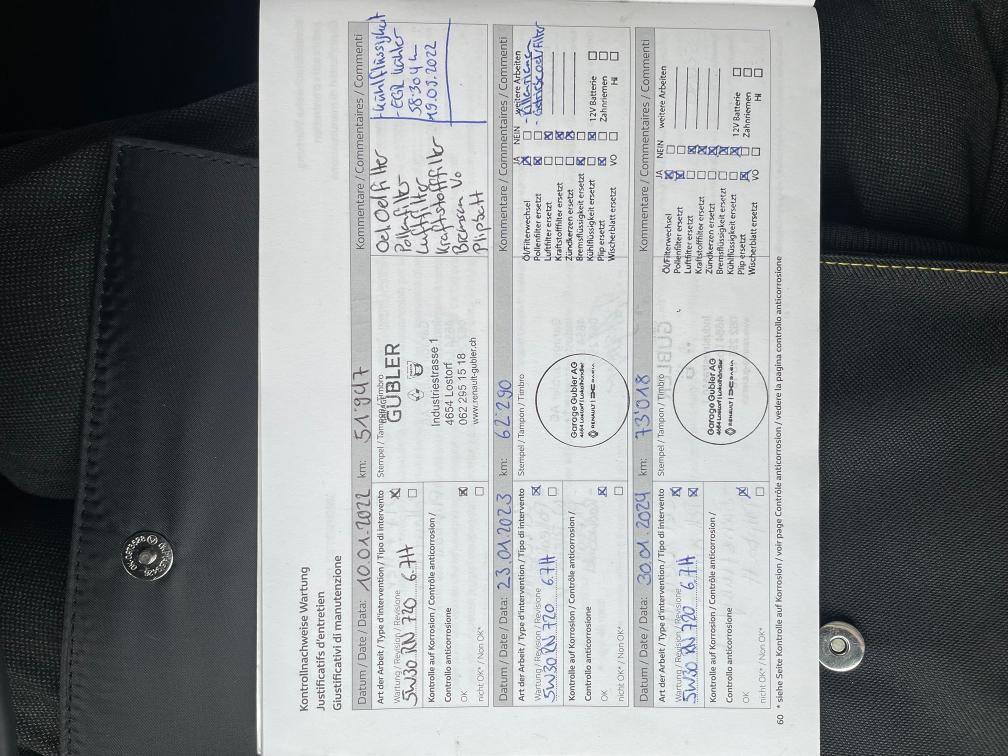 Kontrollnachweise Wartung
Justificatifs d'entretien
Giustificativi di manutenzione
Datum / Date / Data: 10.01.2022 km: 51'947 Kommentare / Commentaires / Commenti
Art der Arbeit / Type d'intervention / Tipo di intervento
Wartung / Revision / Revisione
5W30 RN 720 6.7H
Kontrolle auf Korrosion / Contrôle anticorrosion /
Controllo anticorrosione
OK
nicht OK* / Non OK*
Stempel / Tampon / Timbro
GUBLER
Industriestrasse 1
4654 Lostorf
062 295 15 18
www.renault-gubler.ch
Oel Oelfilter
Pollenfilter
Luftfilter
Kraftstofffilter
Bremsen Vo
- Kühlflüssigkeit
- EGR Kühler
58'304
19.09.2022
Datum / Date / Data: 23.01.2023 km: 62'290 Kommentare / Commentaires / Commenti
Art der Arbeit / Type d'intervention / Tipo di intervento
Wartung / Revision / Revisione
5W30 RN 720 6.7H
Kontrolle auf Korrosion / Contrôle anticorrosion /
Controllo anticorrosione
OK
nicht OK* / Non OK*
Stempel / Tampon / Timbro
Garage Gubler AG
4654 Lostorf
RENAULT DACIA
JA NEIN weitere Arbeiten
Öl/Filterwechsel
Pollenfilter ersetzt
Luftfilter ersetzt
Kraftstofffilter ersetzt
Zündkerzen ersetzt
Bremsflüssigkeit ersetzt
Kühlflüssigkeit ersetzt 12V Batterie
Plip ersetzt Zahnriemen
Wischerblatt ersetzt VO Hi
Datum / Date / Data: 30.01.2024 km: 73'018 Kommentare / Commentaires / Commenti
Art der Arbeit / Type d'intervention / Tipo di intervento
Wartung / Revision / Revisione
5W30 RN 720 6.7H
Kontrolle auf Korrosion / Contrôle anticorrosion /
Controllo anticorrosione
OK
nicht OK* / Non OK*
Stempel / Tampon / Timbro
Garage Gubler AG
4654 Lostorf
RENAULT DACIA
JA NEIN weitere Arbeiten
Öl/Filterwechsel
Pollenfilter ersetzt
Luftfilter ersetzt
Kraftstofffilter ersetzt
Zündkerzen ersetzt
Bremsflüssigkeit ersetzt
Kühlflüssigkeit ersetzt 12V Batterie
Plip ersetzt Zahnriemen
Wischerblatt ersetzt VO Hi
60 * siehe Seite Kontrolle auf Korrosion / voir page Contrôle anticorrosion / vedere la pagina controllo anticorrosione